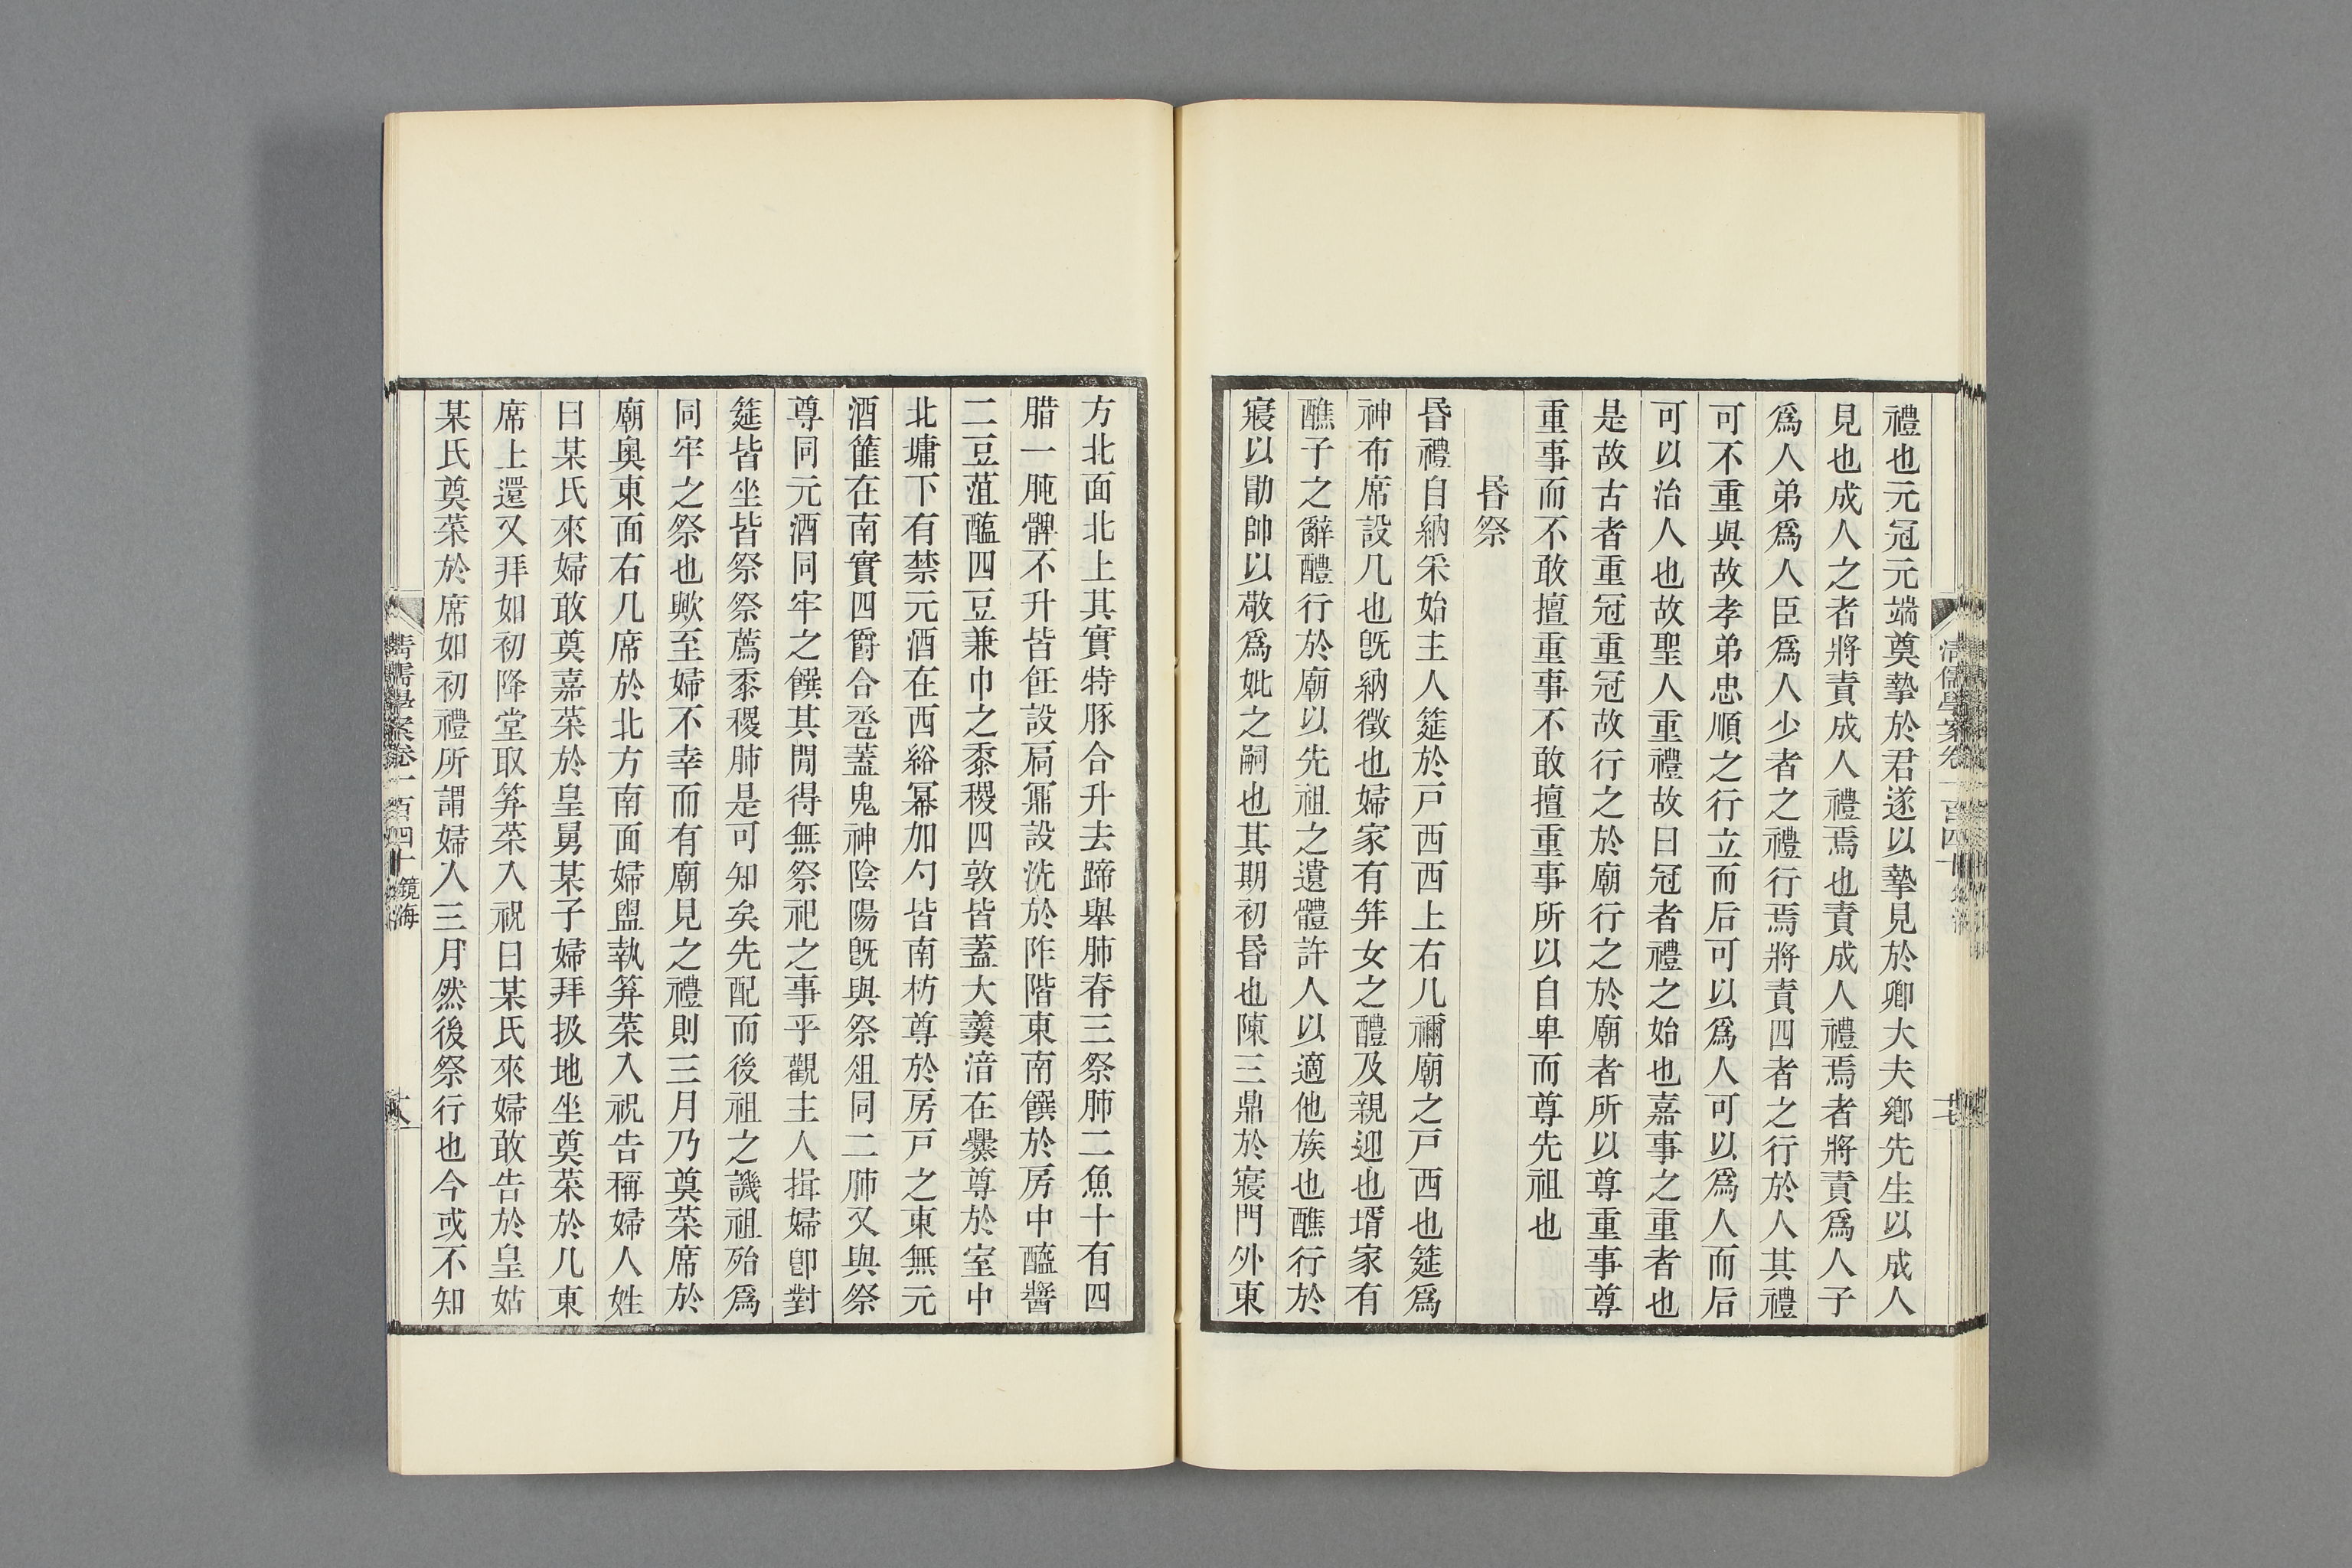 禮也元冠元端奠摯於君遂以摯見於卿大夫鄉先生以成人
見也成人之者將責成人禮焉也責成人禮焉者將責爲人子
爲人弟爲人臣爲人少者之禮行焉將責四者之行於人其禮
可不重與故孝弟忠順之行立而后可以爲人可以爲人而后
可以治人也故聖人重禮故曰冠者禮之始也嘉事之重者也
是故古者重冠重冠故行之於廟行之於廟者所以尊重事尊
重事而不敢擅重事不敢擅重事所以自卑而尊先祖也
昏祭
昏禮自納采始主人筵於戸西西上右几禰廟之戸西也筵爲
神布席設几也旣納徵也婦家有笲女之醴及親迎也壻家有
醮子之辭醴行於廟以先祖之遺體許人以適他族也醮行於
寢以勖帥以敬爲妣之嗣也其期初昏也陳三鼎於寢門外東
方北面北上其實特豚合升去蹄舉肺脊三祭肺二魚十有四
腊一肫髀不升皆飪設扃鼏設洗於阼階東南饌於房中醯醬
二豆菹醢四豆兼巾之黍稷四敦皆蓋大羹湆在爨尊於室中
北墉下有禁元酒在西綌冪加勺皆南枋尊於房戸之東無元
酒篚在南實四爵合卺蓋鬼神陰陽旣與祭俎同二肺又與祭
尊同元酒同牢之饌其閒得無祭祀之事乎觀主人揖婦卽對
筵皆坐皆祭祭薦黍稷肺是可知矣先配而後祖之譏祖殆爲
同牢之祭也歟至婦不幸而有廟見之禮則三月乃奠菜席於
廟奧東面右几席於北方南面婦盥執笲菜入祝告稱婦人姓
曰某氏來婦敢奠嘉菜於皇舅某子婦拜扱地坐奠菜於几東
席上還又拜如初降堂取笲菜入祝曰某氏來婦敢告於皇姑
某氏奠菜於席如初禮所謂婦入三月然後祭行也今或不知
清儒學案卷一百四十 鏡海